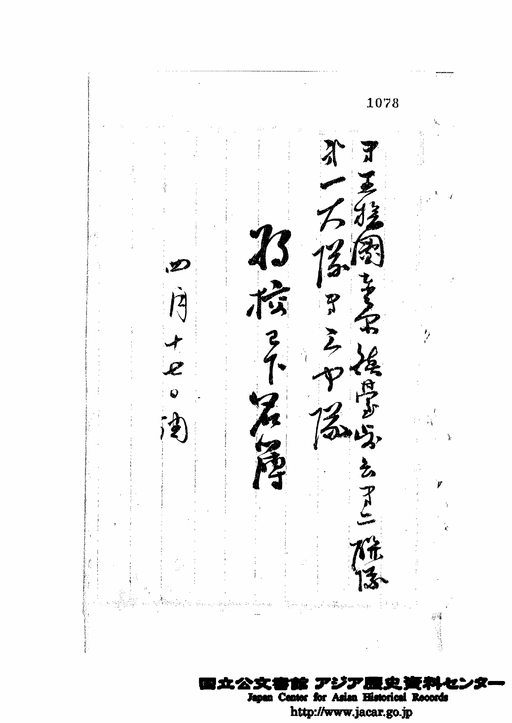 1078
第五旅團東京鎮臺歩兵第二聯隊
第一大隊第三中隊
将校已下名簿
四月十七日調
国立公文書館 アジア歴史資料センター
Japan Center for Asian Historical Records
http://www.jacar.go.jp